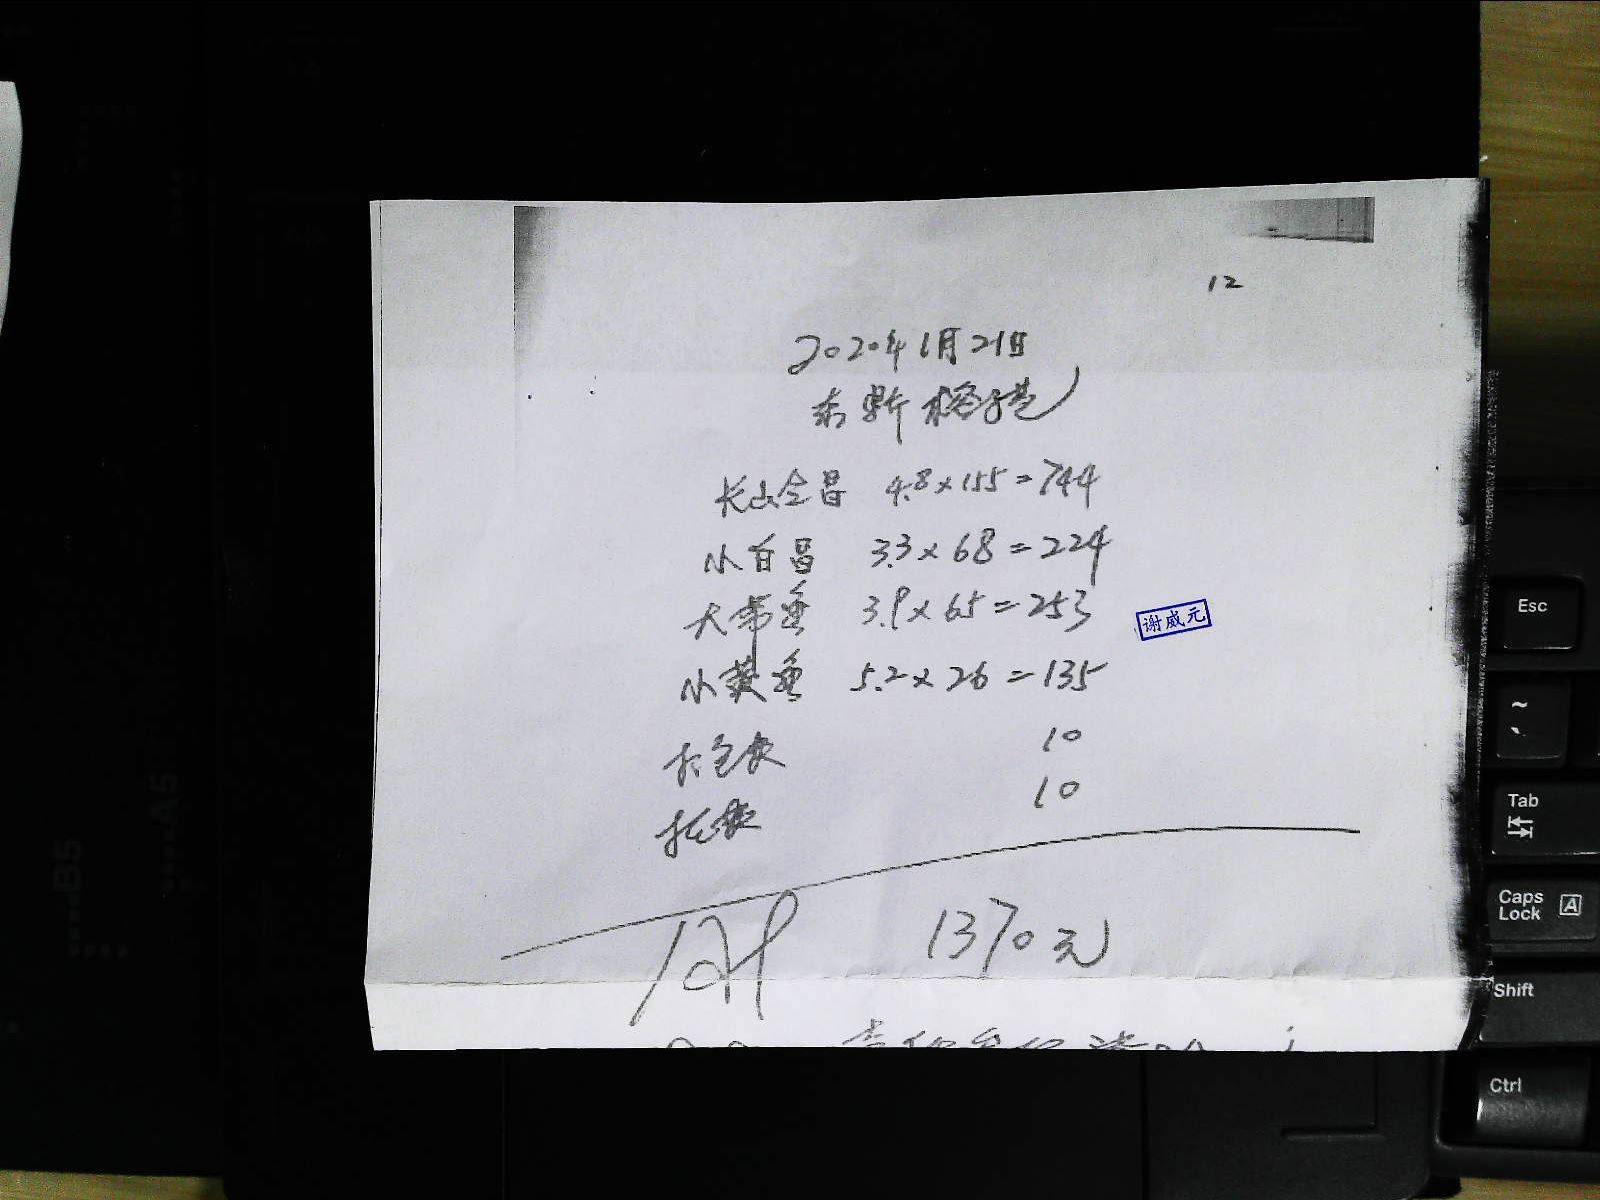 12
2020年1月21日
长山全昌 4.8×155=744
小白昌 3.3×68=224
大带鱼 3.9×65=253
谢威元
小黄鱼 5.2×26=135
10
10
1370元
B5
A5
Esc
~
Tab
Caps Lock A
Shift
Ctrl